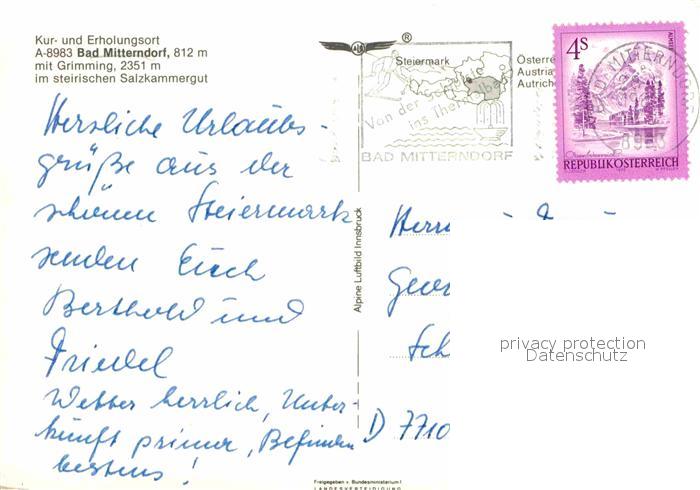 Kur- und Erholungsort
A-8983 Bad Mitterndorf, 812 m
mit Grimming, 2351 m
im steirischen Salzkammergut
Herzliche Urlaubs-
grüße aus der
schönen Steiermark
senden Euch
Berthold und
Friedel
Wetter herrlich, Unter-
kunft prima, Befinden
bestens!
Alpine Luftbild Innsbruck
®
Steiermark
Österre
Austria
Autrich
Von der
ins Thermalbad
BAD MITTERNDORF
4S
REPUBLIK ÖSTERREICH
BAD MITTERNDORF
8983
Herrn
Geor
Sch
D 7710
privacy protection
Datenschutz
Freigegeben v. Bundesministerium f.
LANDESVERTEIDIGUNG